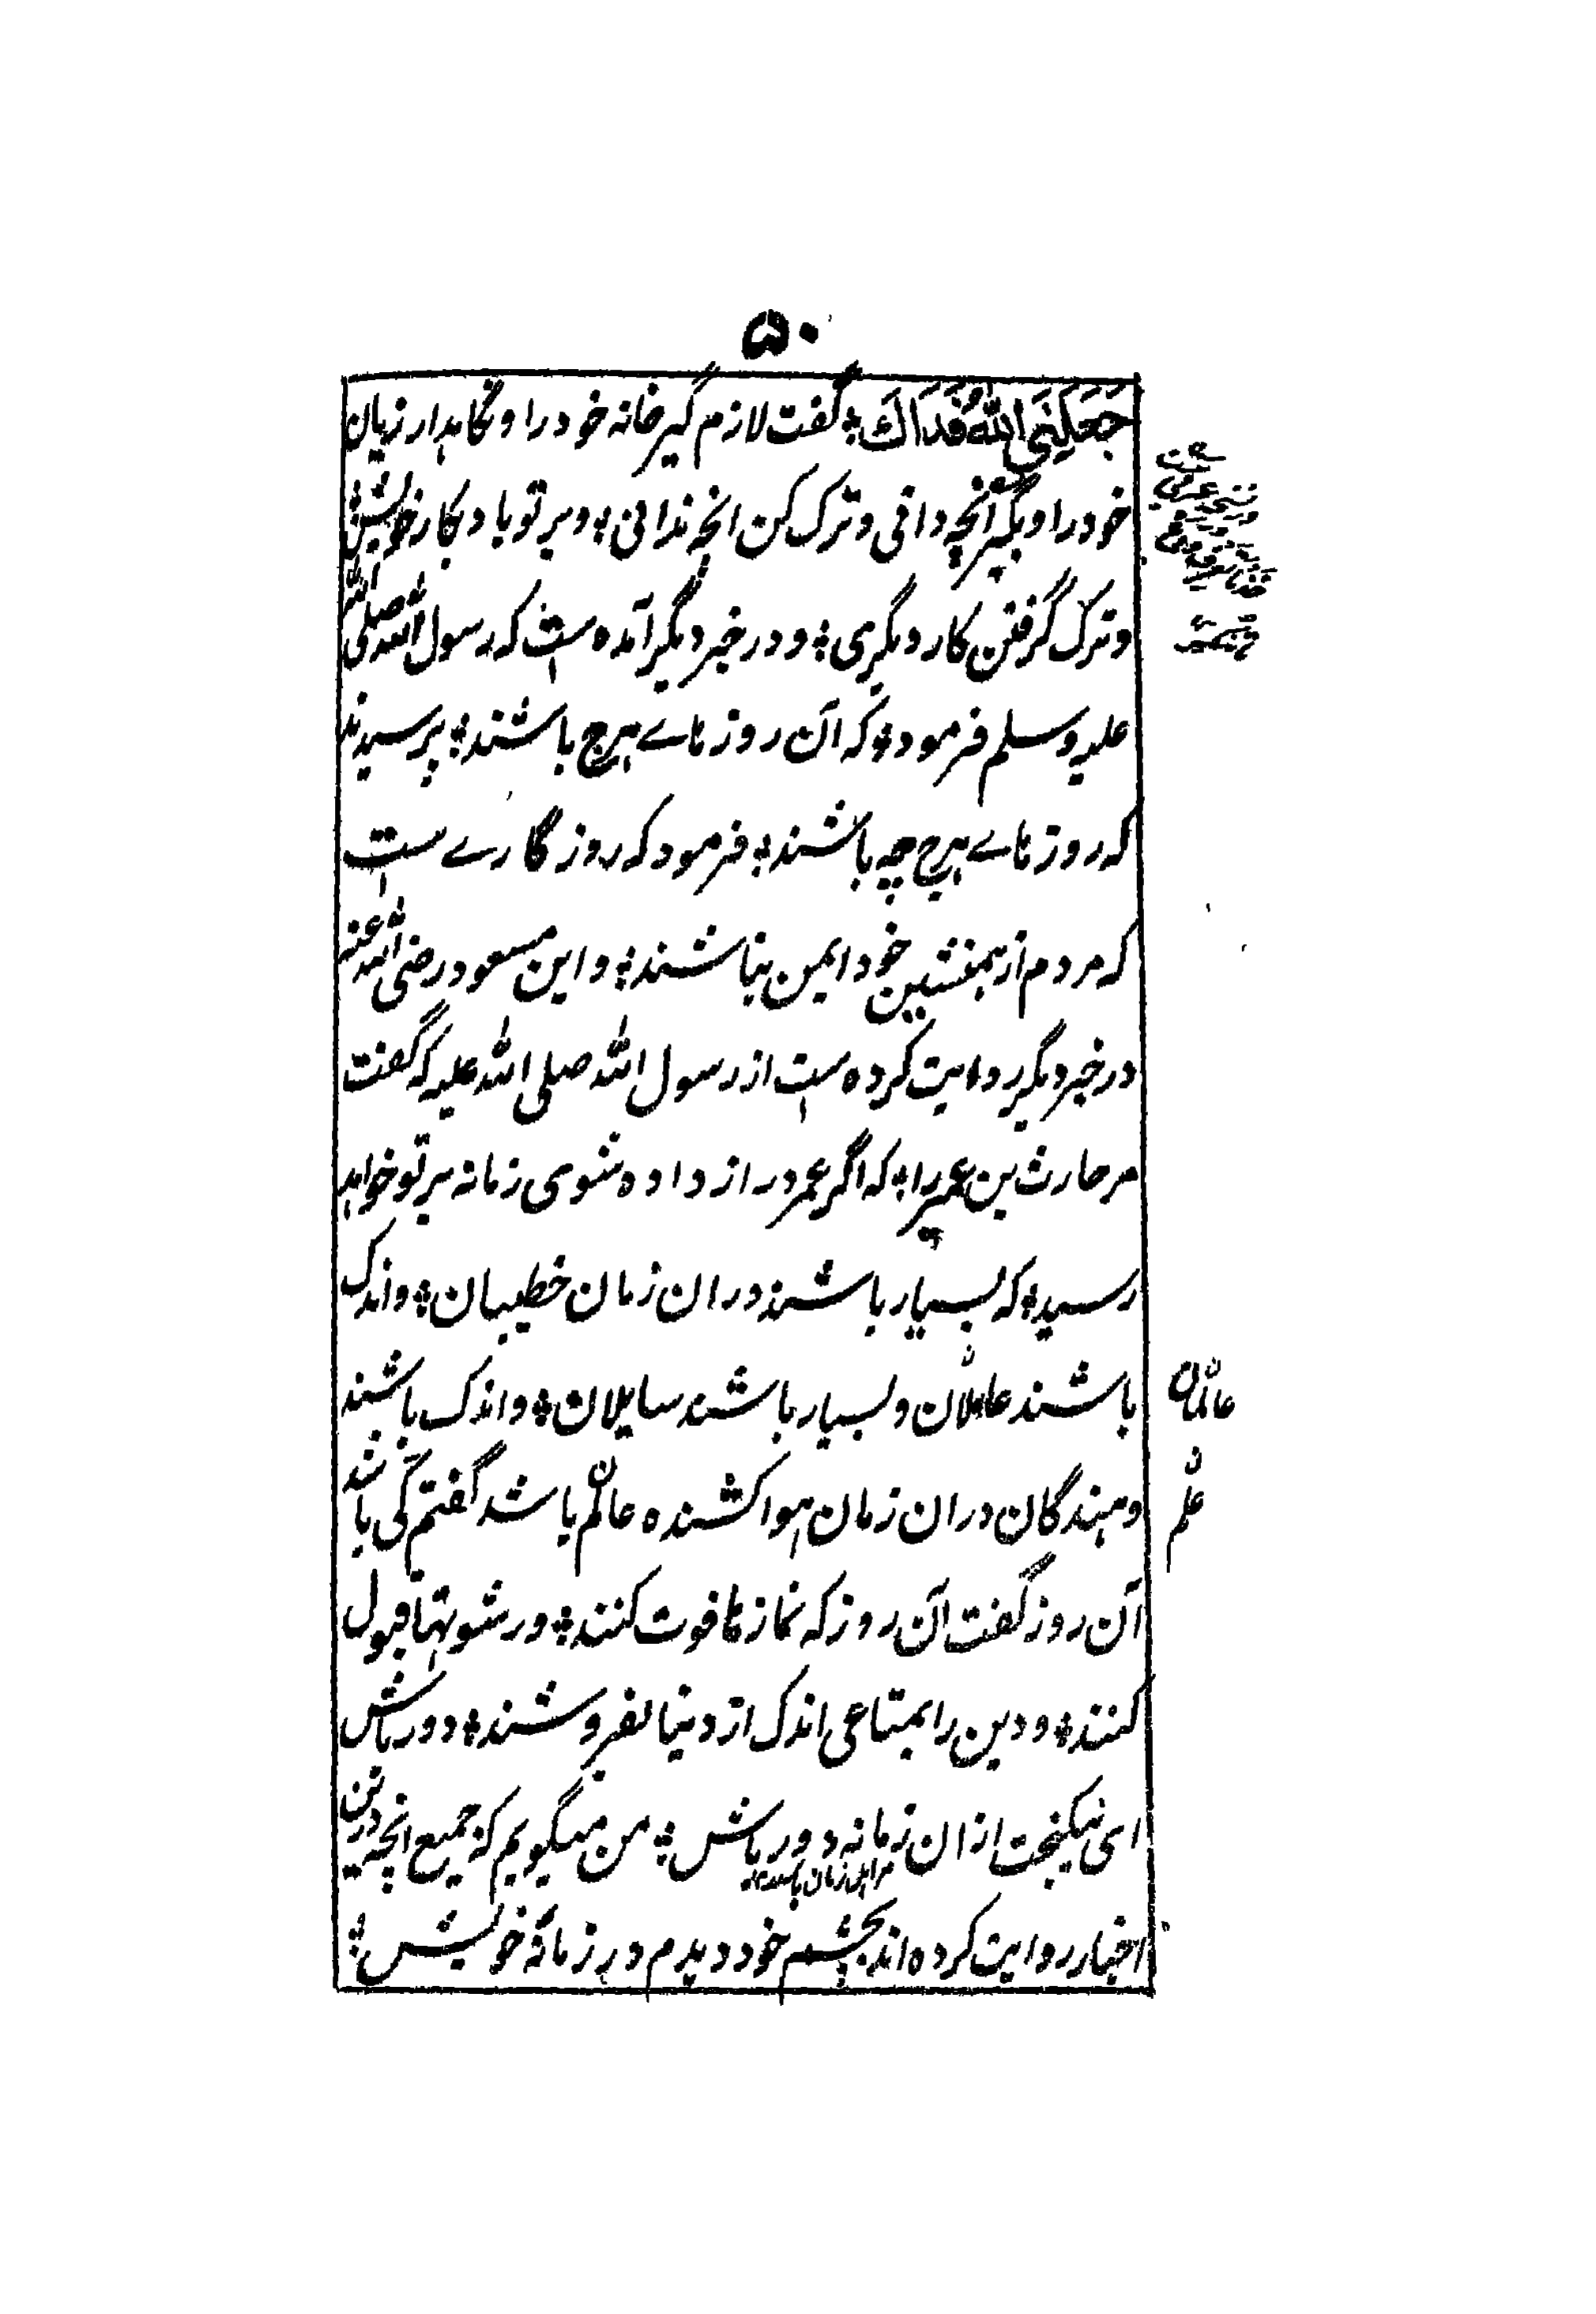 ۵۰
جَعَلَنِیَ اللّٰهُ فِدَاكَ؛ گفت لازم گیر خانه خود را و نگاهدار زبان
خود را و بگیر آنچه دانی و ترک کن انچه ندانی؛ و بر تو باد بکار خویش؛
و ترک گرفتن کار دیگری؛ و در خبر دیگر آمده است که رسول الله صلی الله
علیه و سلم فرمود؛ که آن روزهاے هرج باشند؛ پرسیدند
که روزهاے هرج چه باشند؛ فرمود که روزگارے ست
که مردم از همنشین خود ایمن نباشند؛ و ابن مسعود رضی الله عنه
در خبر دیگر روایت کرده است از رسول الله صلی الله علیه که گفت
مر حارث بن عمیر را؛ که اگر عمر دراز داده شوی زمانه بر تو خواهد
رسید؛ که بسیار باشند دران زمان خطیبان؛ و اندک
باشند عاملان و بسیار باشند سایلان؛ و اندک باشند
دهندگان دران زمان هوا کشنده عالم باشد گفتم کی باشد
آن روز گفت آن روز که نمازها فوت کنند؛ و رشوتها قبول
کنند؛ و دین را بمتاعی اندک از دنیا بفروشند؛ دور باش
ای نیکبخت ازان زمانه دور باش؛ من میگویم که جمیع انچه درین
اخبار روایت کرده اند بچشم خود دیدم در زمانهٔ خویش؛
عالمان
علم